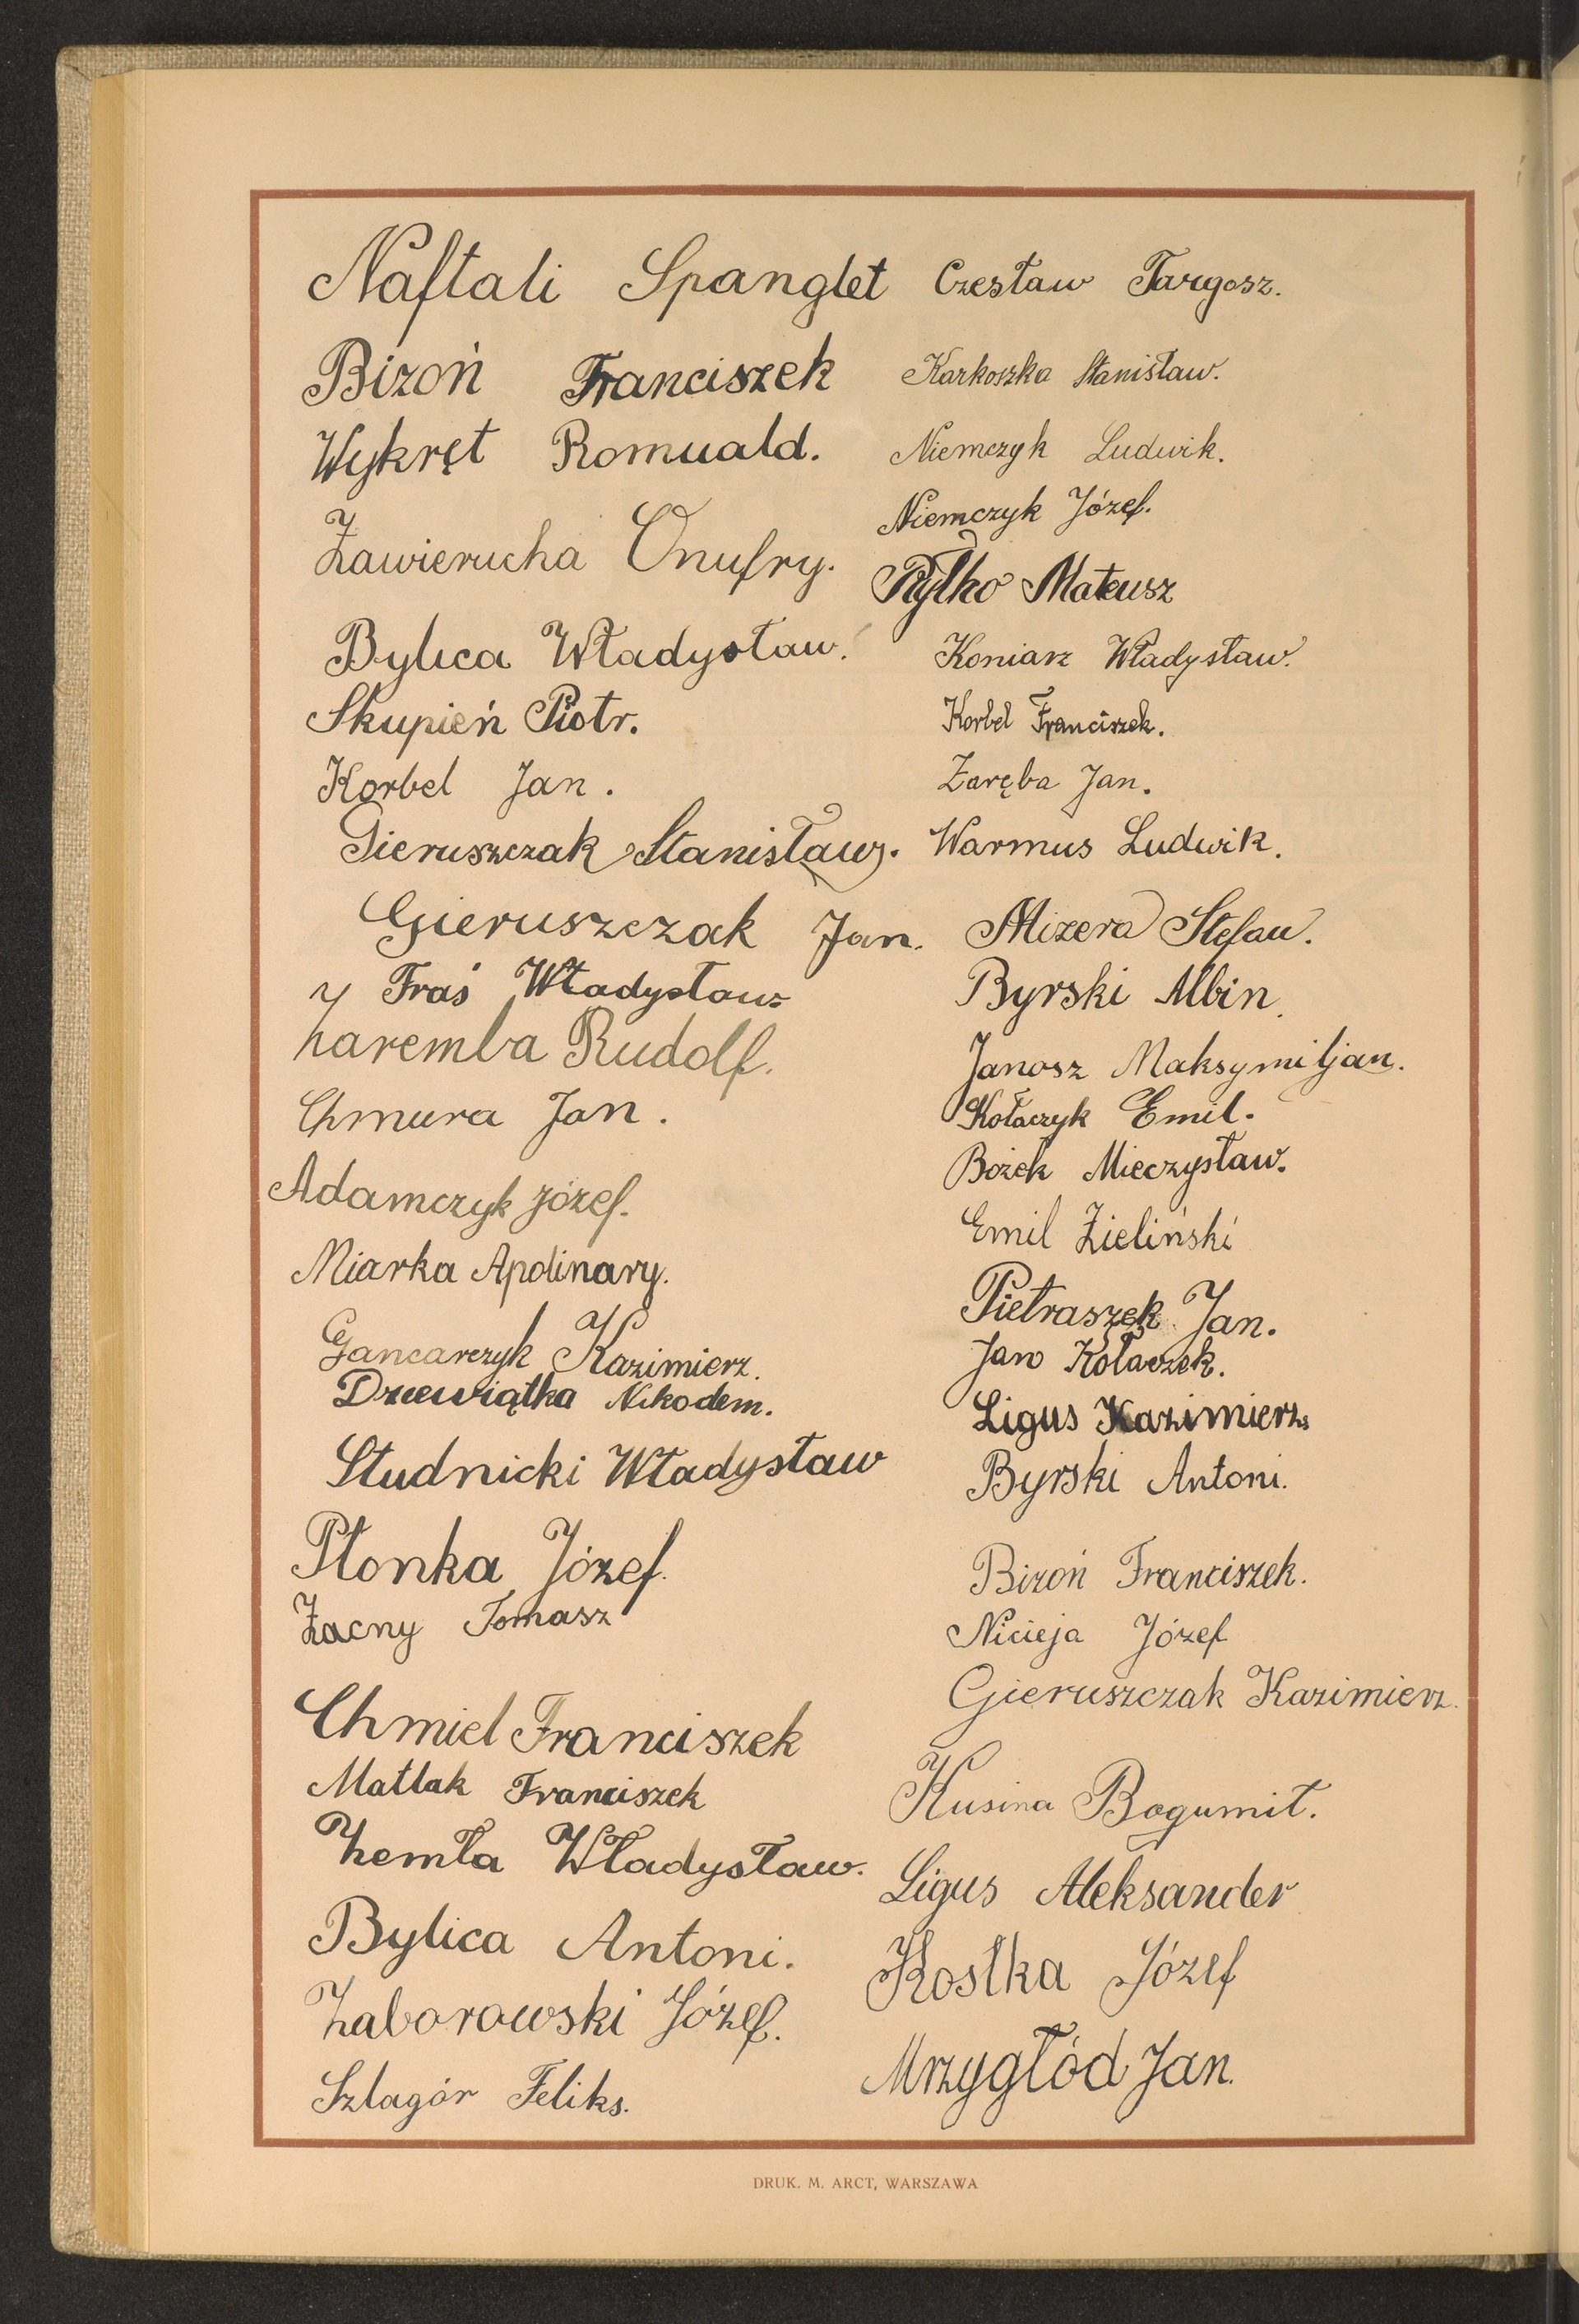 Naftali Spanglet
Bizoń Franciszek
Wykręt Romuald.
Zawierucha Onufry.
Bylica Władysław.
Skupień Piotr.
Korbel Jan.
Gieruszczak Stanisław.
Gieruszczak Jan.
Fraś Władysław
Zaremba Rudolf.
Chmura Jan.
Adamczyk Józef.
Miarka Apolinary.
Gancarczyk Kazimierz.
Drzewiątka Nikodem.
Studnicki Władysław
Płonka Józef.
Zacny Tomasz
Chmiel Franciszek
Matlak Franciszek
Zemła Władysław.
Bylica Antoni.
Zaborowski Józef.
Szlagór Feliks.
Czesław Targosz.
Karkoszka Stanisław.
Niemczyk Ludwik.
Niemczyk Józef.
Ryłko Mateusz
Koniarz Władysław.
Korbel Franciszek.
Zaręba Jan.
Warmus Ludwik.
Mizera Stefan.
Byrski Albin.
Janosz Maksymiljan.
Kołaczyk Emil.
Bożek Mieczysław.
Emil Zieliński
Pietraszek Jan.
Jan Kołaczek.
Ligus Kazimierz.
Byrski Antoni.
Bizoń Franciszek.
Nicieja Józef
Gieruszczak Kazimierz.
Kusina Bogumił.
Ligus Aleksander
Kostka Józef
Mrzygłód Jan.
DRUK. M. ARCT, WARSZAWA